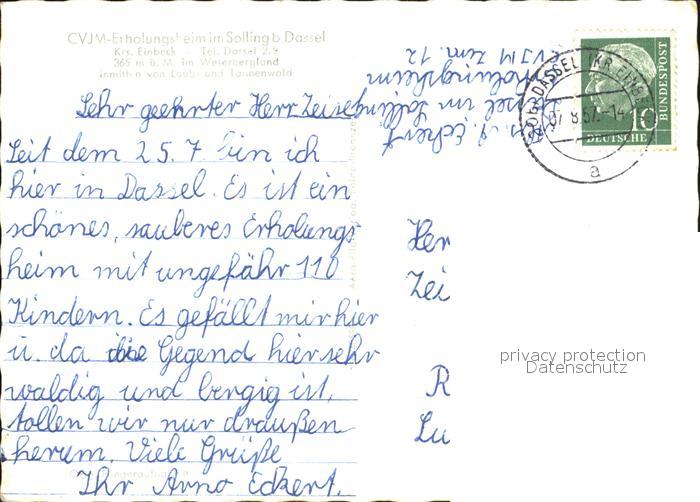 CVJM-Erholungsheim im Solling b. Dassel
Krs. Einbeck - Tel. Dassel 2 9
365 m ü. M. im Weserbergland
inmitten von Laub- und Tannenwald
Sehr geehrter Herr Zeise
Seit dem 25.7. bin ich
hier in Dassel. Es ist ein
schönes, sauberes Erholungs-
heim mit ungefähr 110
Kindern. Es gefällt mir hier
u. da die Gegend hier sehr
waldig und bergig ist,
tollen wir nur draußen
herum. Viele Grüße
Ihr Arno Eckert.
A. Eckert
Dassel im Solling
Erholungsheim
CVJM Zim. 12
DASSEL (KR EINB
8.57.-14
a
10
DEUTSCHE
BUNDESPOST
Her
Zei
R
Lu
privacy protection
Datenschutz